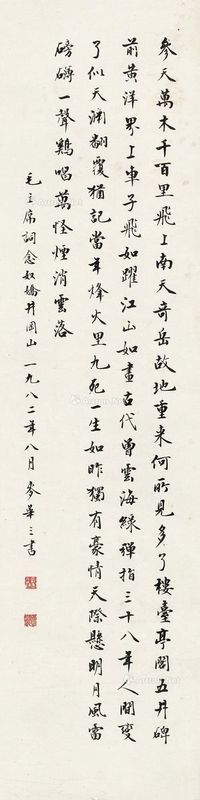 参天萬木千百里飛上南天奇岳故地重来何所見多了樓臺亭閣五井碑
前黄洋界上車子飛如躍江山如畫古代曾雲海緑彈指三十八年人間變
了似天渊翻覆猶記當年烽火里九死一生如昨獨有豪情天際懸明月風雷
磅礴一聲鷄唱萬怪煙消雲落
毛主席詞念奴嬌井岡山一九八二年八月麥華三書